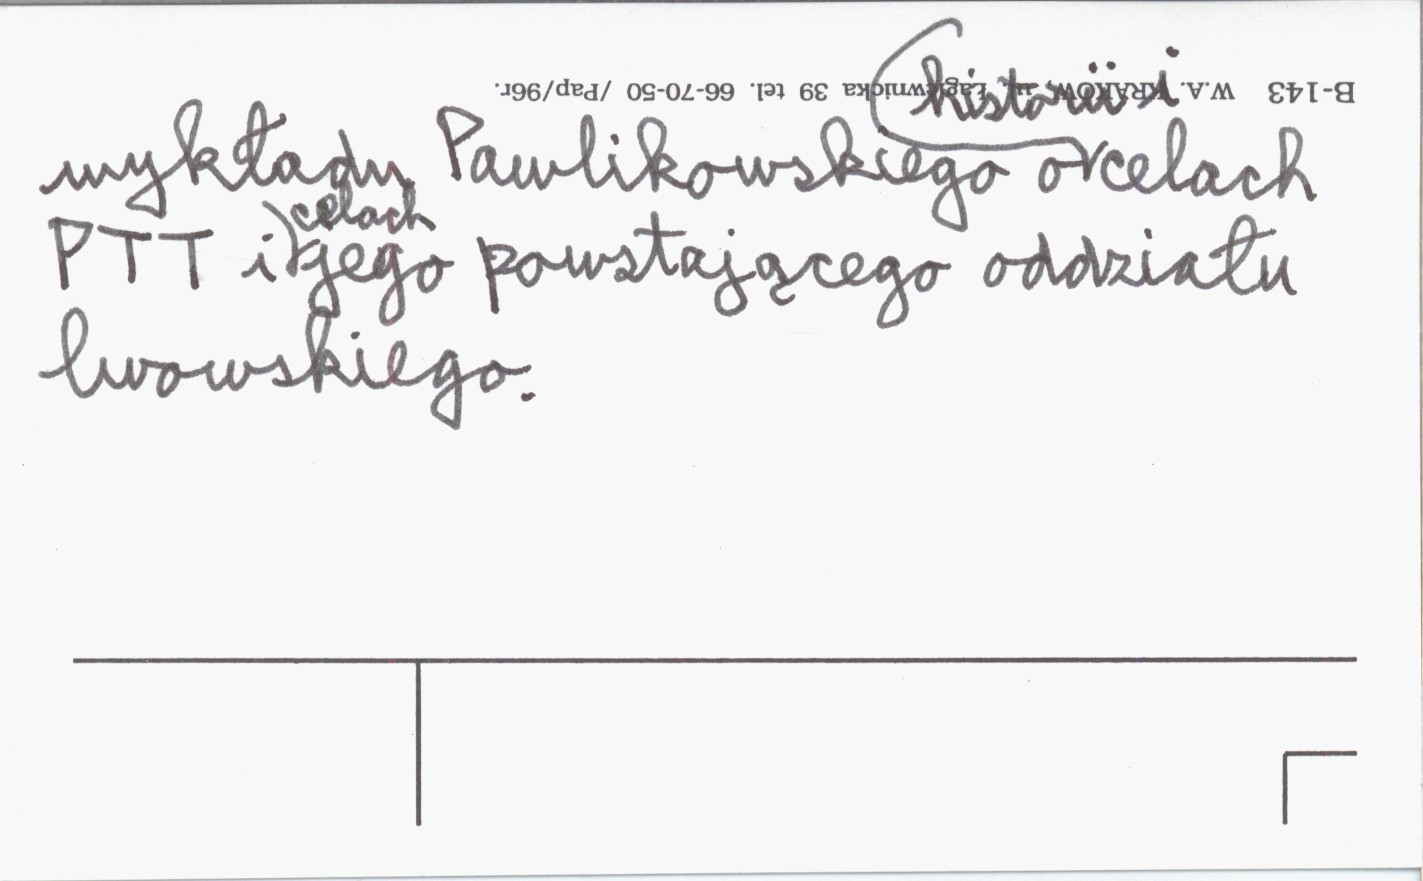 B-143 W.A. KRAKÓW, ul. Łagiewnicka 39 tel. 66-70-50 /Pap/96r.
historii i
wykładu Pawlikowskiego o celach
celach
PTT i jego powstającego oddziału
lwowskiego.